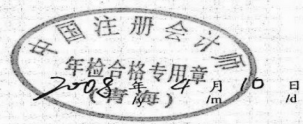 中国注册会计师
年检合格专用章
(青海)
2008年 4月 10日
/y /m /d